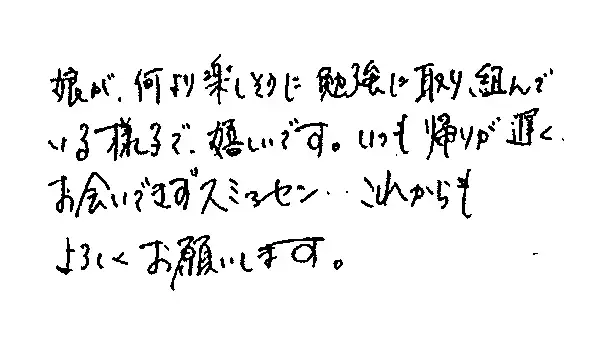 娘が、何より楽しそうに勉強に取り組んで
いる様子で、嬉しいです。いつも帰りが遅く、
お会いできずスミマセン‥これからも
よろしくお願いします。